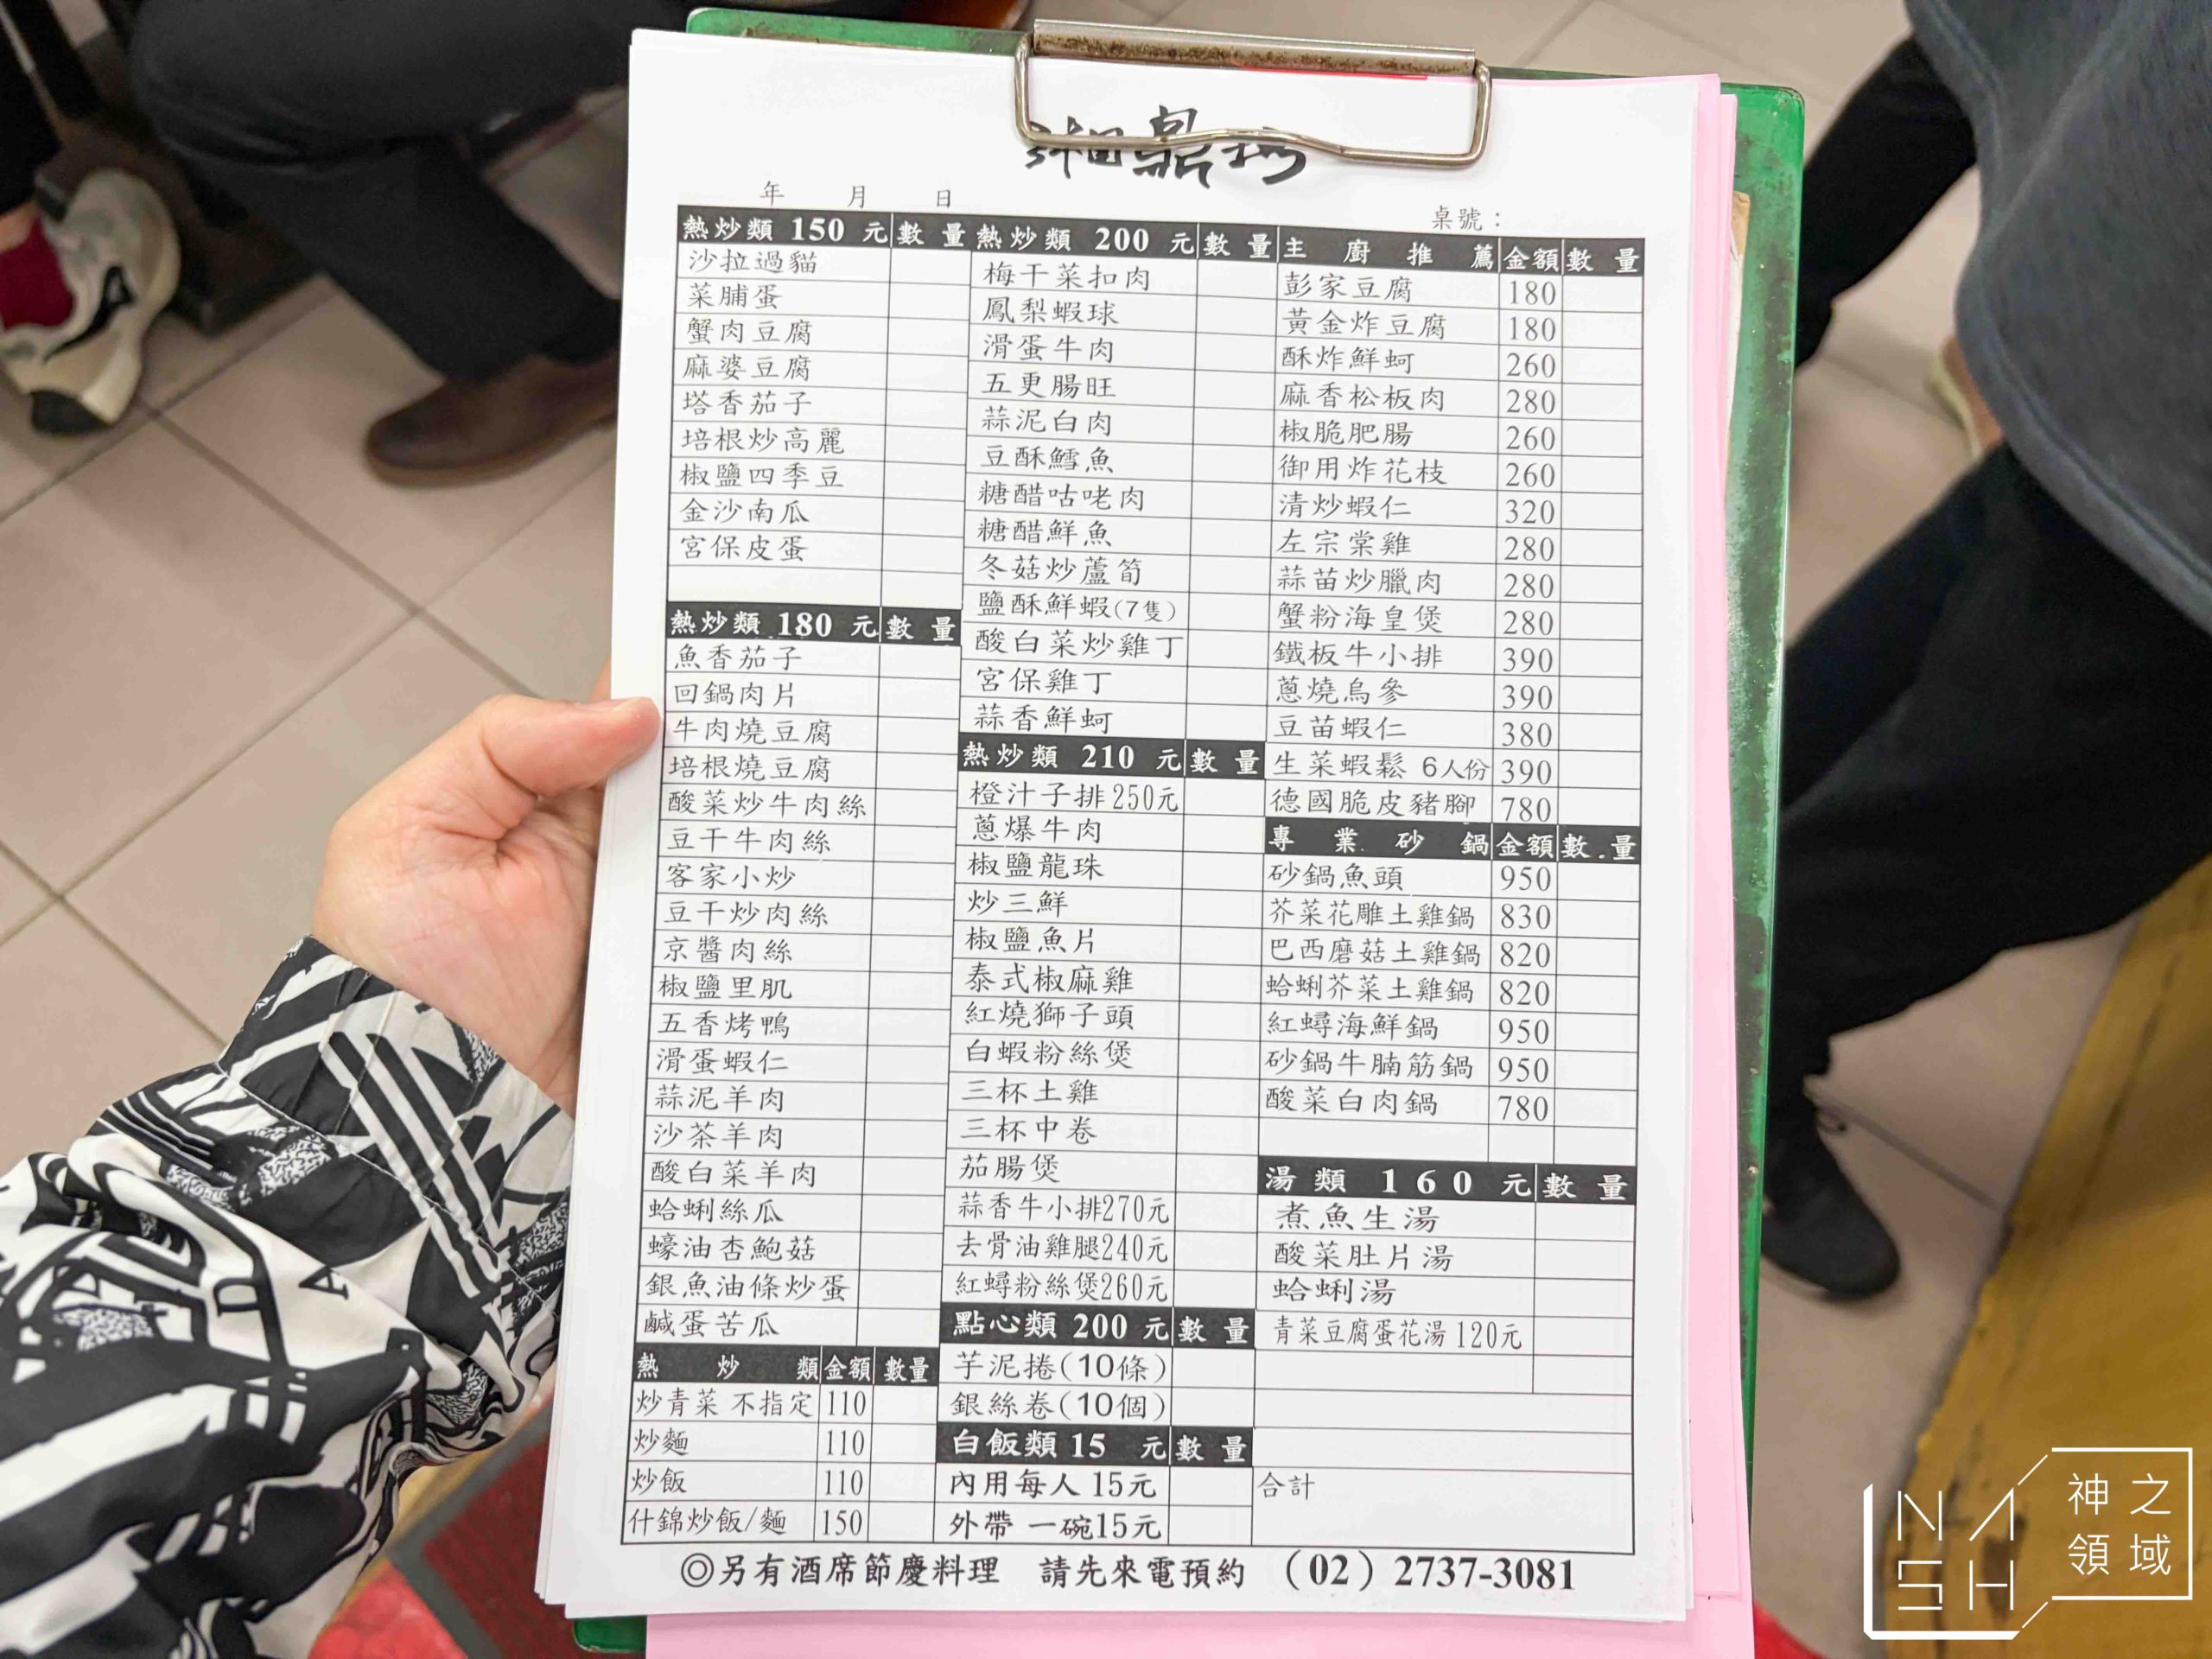 年 月 日
桌號：
熱炒類 150 元 數量
沙拉過貓
菜脯蛋
蟹肉豆腐
麻婆豆腐
塔香茄子
培根炒高麗
椒鹽四季豆
金沙南瓜
宮保皮蛋
熱炒類 180 元 數量
魚香茄子
回鍋肉片
牛肉燒豆腐
培根燒豆腐
酸菜炒牛肉絲
豆干牛肉絲
客家小炒
豆干炒肉絲
京醬肉絲
椒鹽里肌
五香烤鴨
滑蛋蝦仁
蒜泥羊肉
沙茶羊肉
酸白菜羊肉
蛤蜊絲瓜
蠔油杏鮑菇
銀魚油條炒蛋
鹹蛋苦瓜
熱炒類 金額 數量
炒青菜 不指定 110
炒麵 110
炒飯 110
什錦炒飯/麵 150
熱炒類 200 元 數量
梅干菜扣肉
鳳梨蝦球
滑蛋牛肉
五更腸旺
蒜泥白肉
豆酥鱈魚
糖醋咕咾肉
糖醋鮮魚
冬菇炒蘆筍
鹽酥鮮蝦(7隻)
酸白菜炒雞丁
宮保雞丁
蒜香鮮蚵
熱炒類 210 元 數量
橙汁子排250元
蔥爆牛肉
椒鹽龍珠
炒三鮮
椒鹽魚片
泰式椒麻雞
紅燒獅子頭
白蝦粉絲煲
三杯土雞
三杯中卷
茄腸煲
蒜香牛小排270元
去骨油雞腿240元
紅蟳粉絲煲260元
點心類 200 元 數量
芋泥捲(10條)
銀絲卷(10個)
白飯類 15 元 數量
內用每人 15元
外帶 一碗15元
主廚推薦 金額 數量
彭家豆腐 180
黃金炸豆腐 180
酥炸鮮蚵 260
麻香松板肉 280
椒脆肥腸 260
御用炸花枝 260
清炒蝦仁 320
左宗棠雞 280
蒜苗炒臘肉 280
蟹粉海皇煲 280
鐵板牛小排 390
蔥燒烏參 390
豆苗蝦仁 380
生菜蝦鬆 6人份 390
德國脆皮豬腳 780
專業砂鍋 金額 數量
砂鍋魚頭 950
芥菜花雕土雞鍋 830
巴西磨菇土雞鍋 820
蛤蜊芥菜土雞鍋 820
紅蟳海鮮鍋 950
砂鍋牛腩筋鍋 950
酸菜白肉鍋 780
湯類 160 元 數量
煮魚生湯
酸菜肚片湯
蛤蜊湯
青菜豆腐蛋花湯120元
合計
◎另有酒席節慶料理 請先來電預約 (02) 2737-3081
NASH
神之
領域